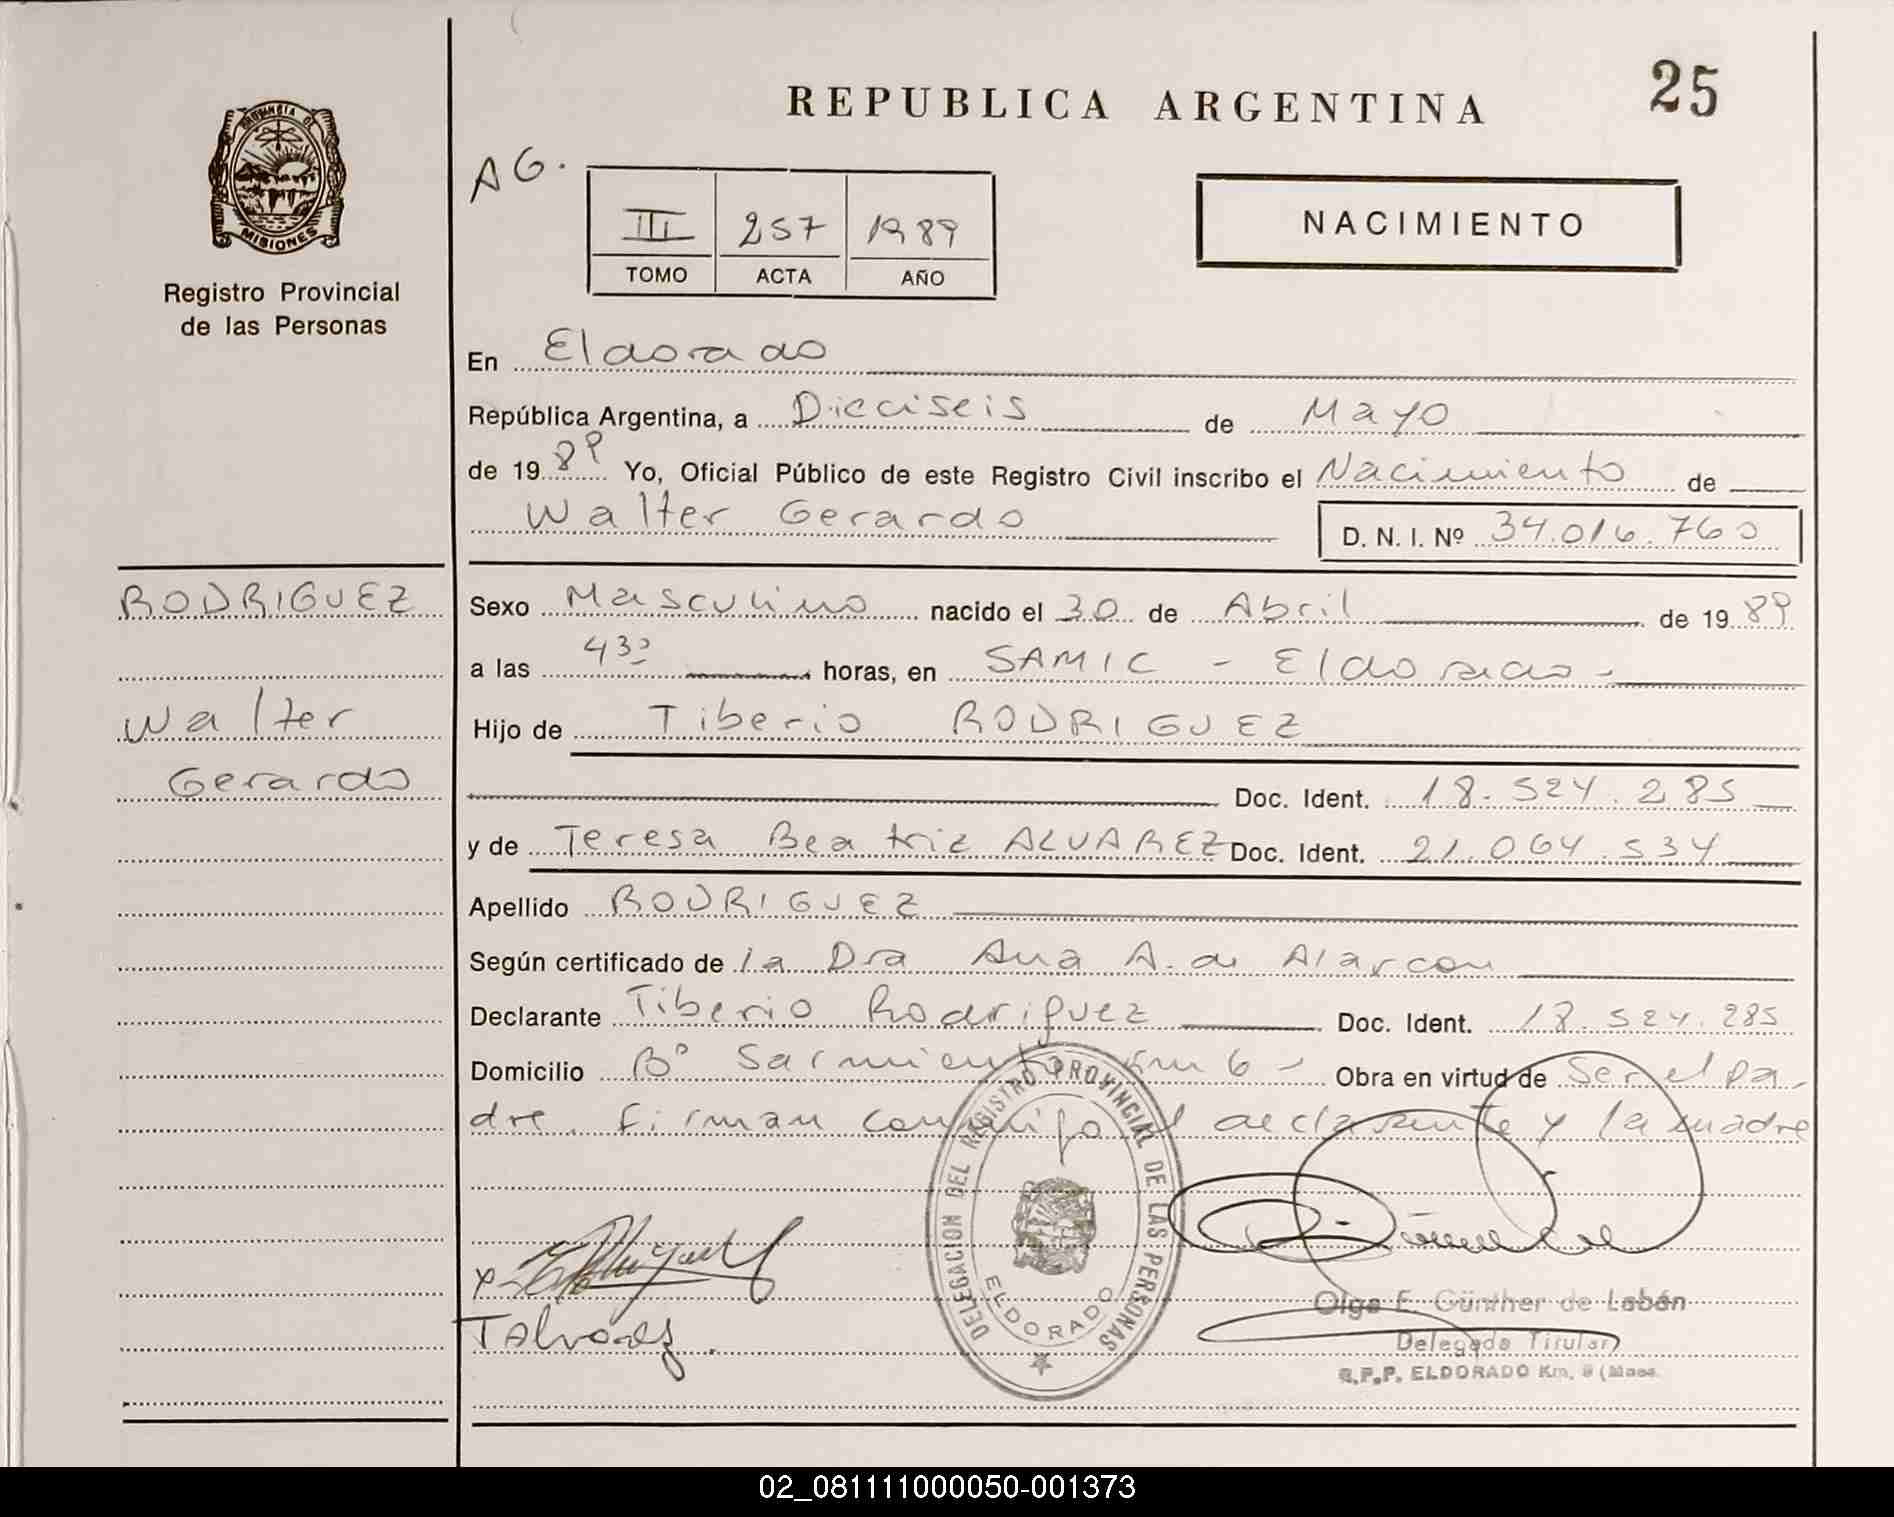 REPUBLICA ARGENTINA
25
PROVINCIA DE
MISIONES
Registro Provincial
de las Personas
AG.
III 257 1989
TOMO ACTA AÑO
NACIMIENTO
En Eldorado
República Argentina, a Dieciseis de Mayo
de 1989 Yo, Oficial Público de este Registro Civil inscribo el Nacimiento de
Walter Gerardo D. N. I. Nº 34.016.760
RODRIGUEZ
Walter
Gerardo
Sexo Masculino nacido el 30 de Abril de 1989
a las 4 30 horas, en SAMIC - Eldorado -
Hijo de Tiberio RODRIGUEZ
Doc. Ident. 18.524.285
y de Teresa Beatriz ALVAREZ Doc. Ident. 21.064.534
Apellido RODRIGUEZ
Según certificado de la Dra Ana A. de Alarcon
Declarante Tiberio Rodriguez Doc. Ident. 18.524.285
Domicilio Bº Sarmiento Km 6 - Obra en virtud de Ser el pa-
dre. Firman conmigo el declarante y la madre
DELEGACION DEL REGISTRO PROVINCIAL DE LAS PERSONAS
ELDORADO
x
TAlvarez.
Olga E. Günther de Labán
Delegada Titular
R.P.P. ELDORADO Km. 9 (Mnes.
02_081111000050-001373